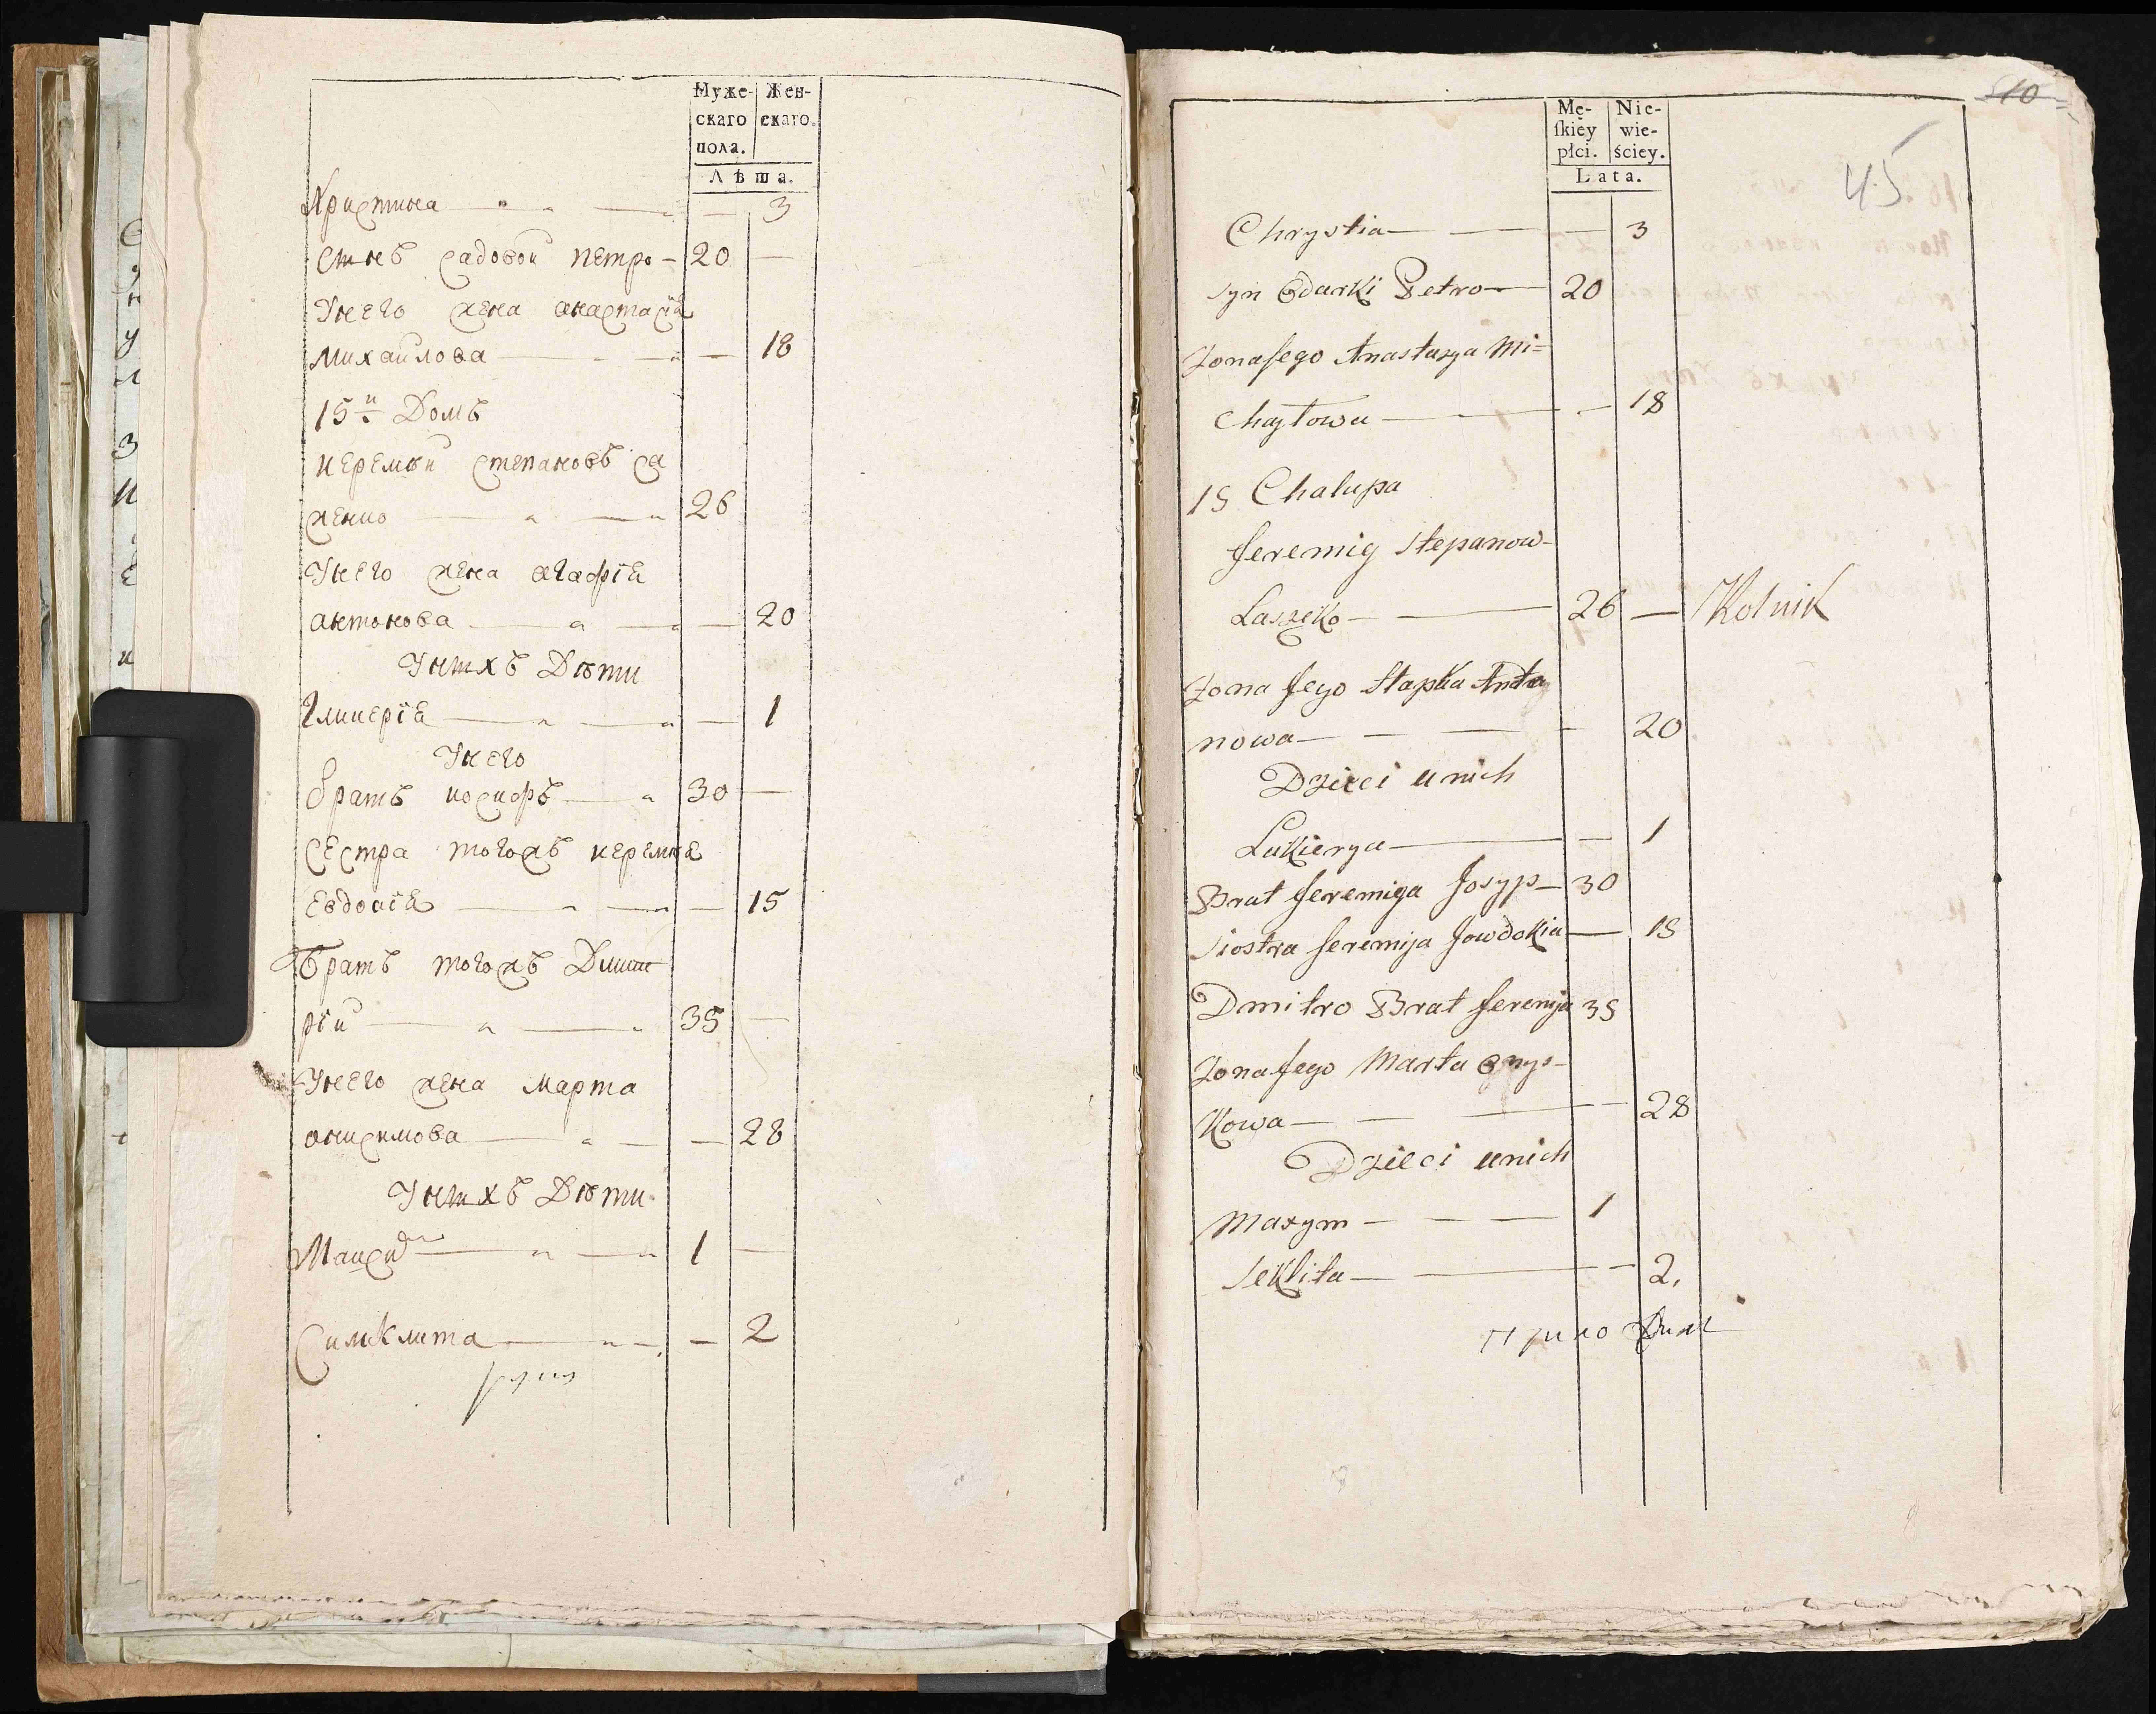 Муже- Жен-
скаго скаго.
пола.
Лѣта.
Христина — 3
Сынъ садовой петро — 20 —
Унего жена анастасія
михайлова — 18
15й Домъ
иеремѣй степановъ са
женко 26
Унего жена агафія
антонова — 20
Унихъ Дѣти
Гликерія — 1
Унего
братъ иосифъ 30 —
сестра тогожъ иеремѣя
Евдокія — 15
Братъ тогожъ Дмит
рій 35 —
Унего жена марта
онисимова — 28
Унихъ Дѣти
Максим 1 —
Симклита — 2
10
45
Mę- Nie-
ſkiey wie-
płci. ściey.
Lata.
Chrystia — 3
syn Odarki Petro 20
Zona jego Anastasya Mi=
chayłowa — 18
15 Chalupa
Jeremiy Stepanow-
Laszeko 26 — Rolnik
Zona jego Hapka Anto
nowa — 20
Dzieci u nich
Lukierya — 1
Brat Jeremija Josyp — 30
Siostra Jeremija Jowdokia — 15
Dmitro Brat Jeremija 35
Zona jego Marta Onys-
kowa — 28
Dzieci u nich
Maxym — 1
Seklita — 2.